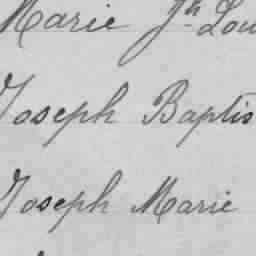 Marie Jh Lou
Joseph Baptis
Joseph Marie